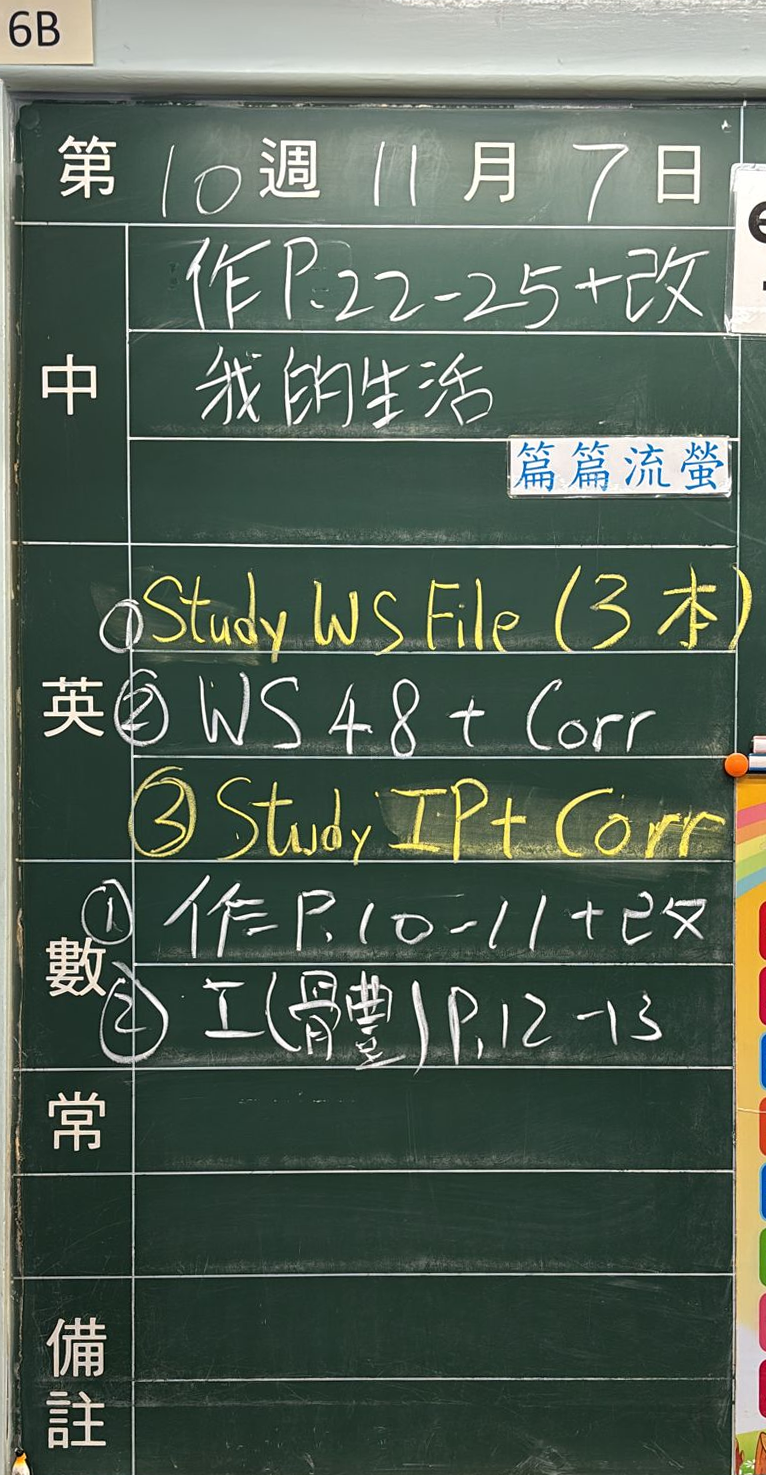 6B
第 10 週 11 月 7 日
中
作P.22-25+改
我的生活
篇篇流螢
英
①Study WS File (3本)
② WS 48 + Corr
③ Study IP + Corr
數
① 作 P.10-11+改
② 工(體) P.12-13
常
備註